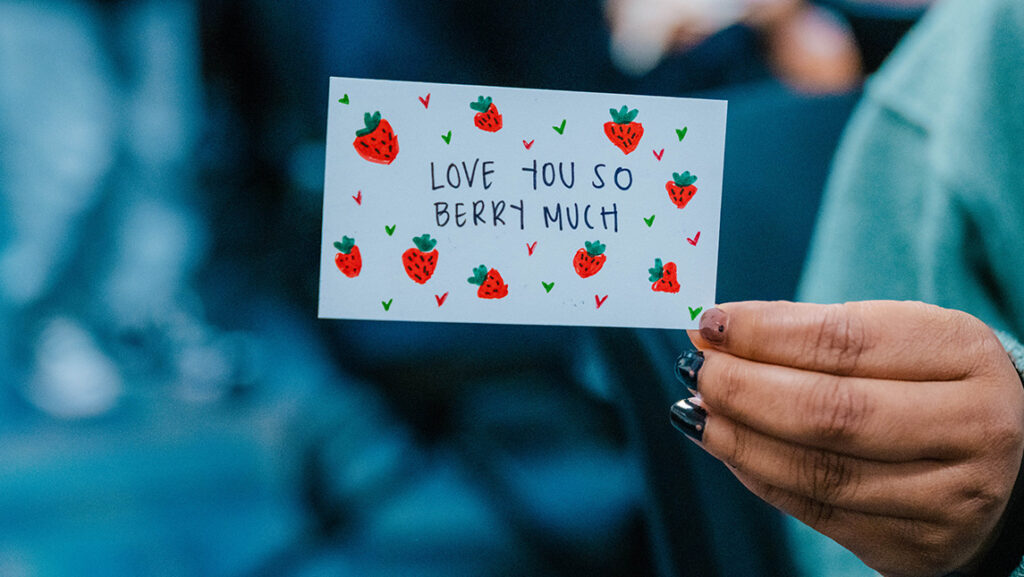 LOVE YOU SO
BERRY MUCH